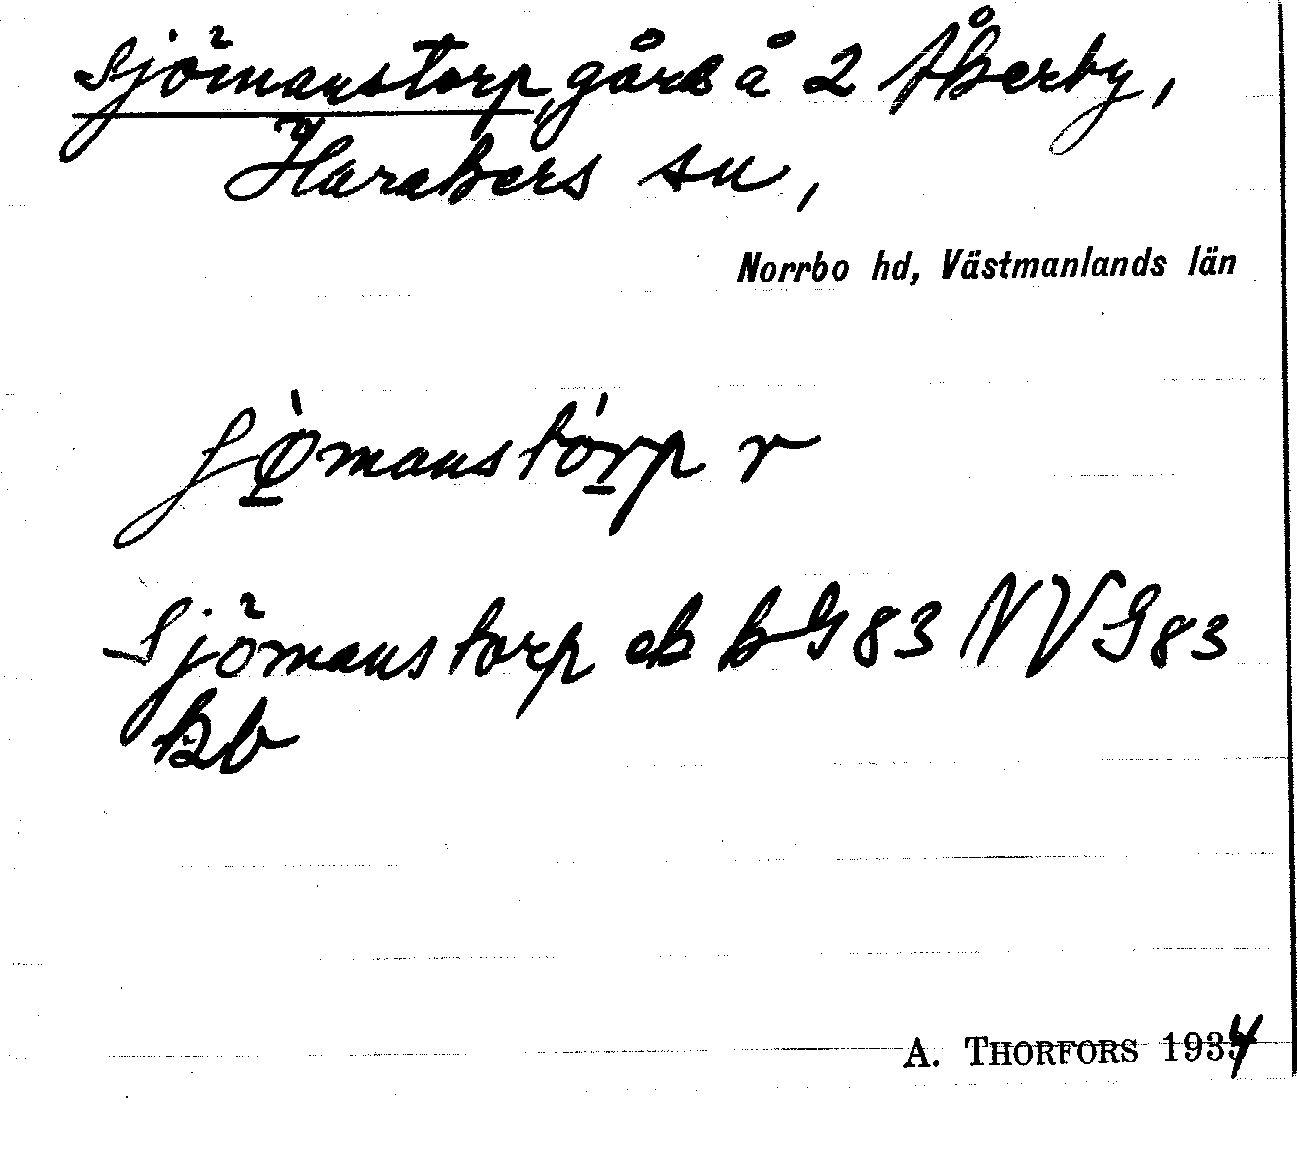 Sjömanstorp, gård å 2 Åkerby,
Harakers sn,
Norrbo hd, Västmanlands län
Sjömanstorp ek bG 83 NVG 83
Kb
A. THORFORS 1934